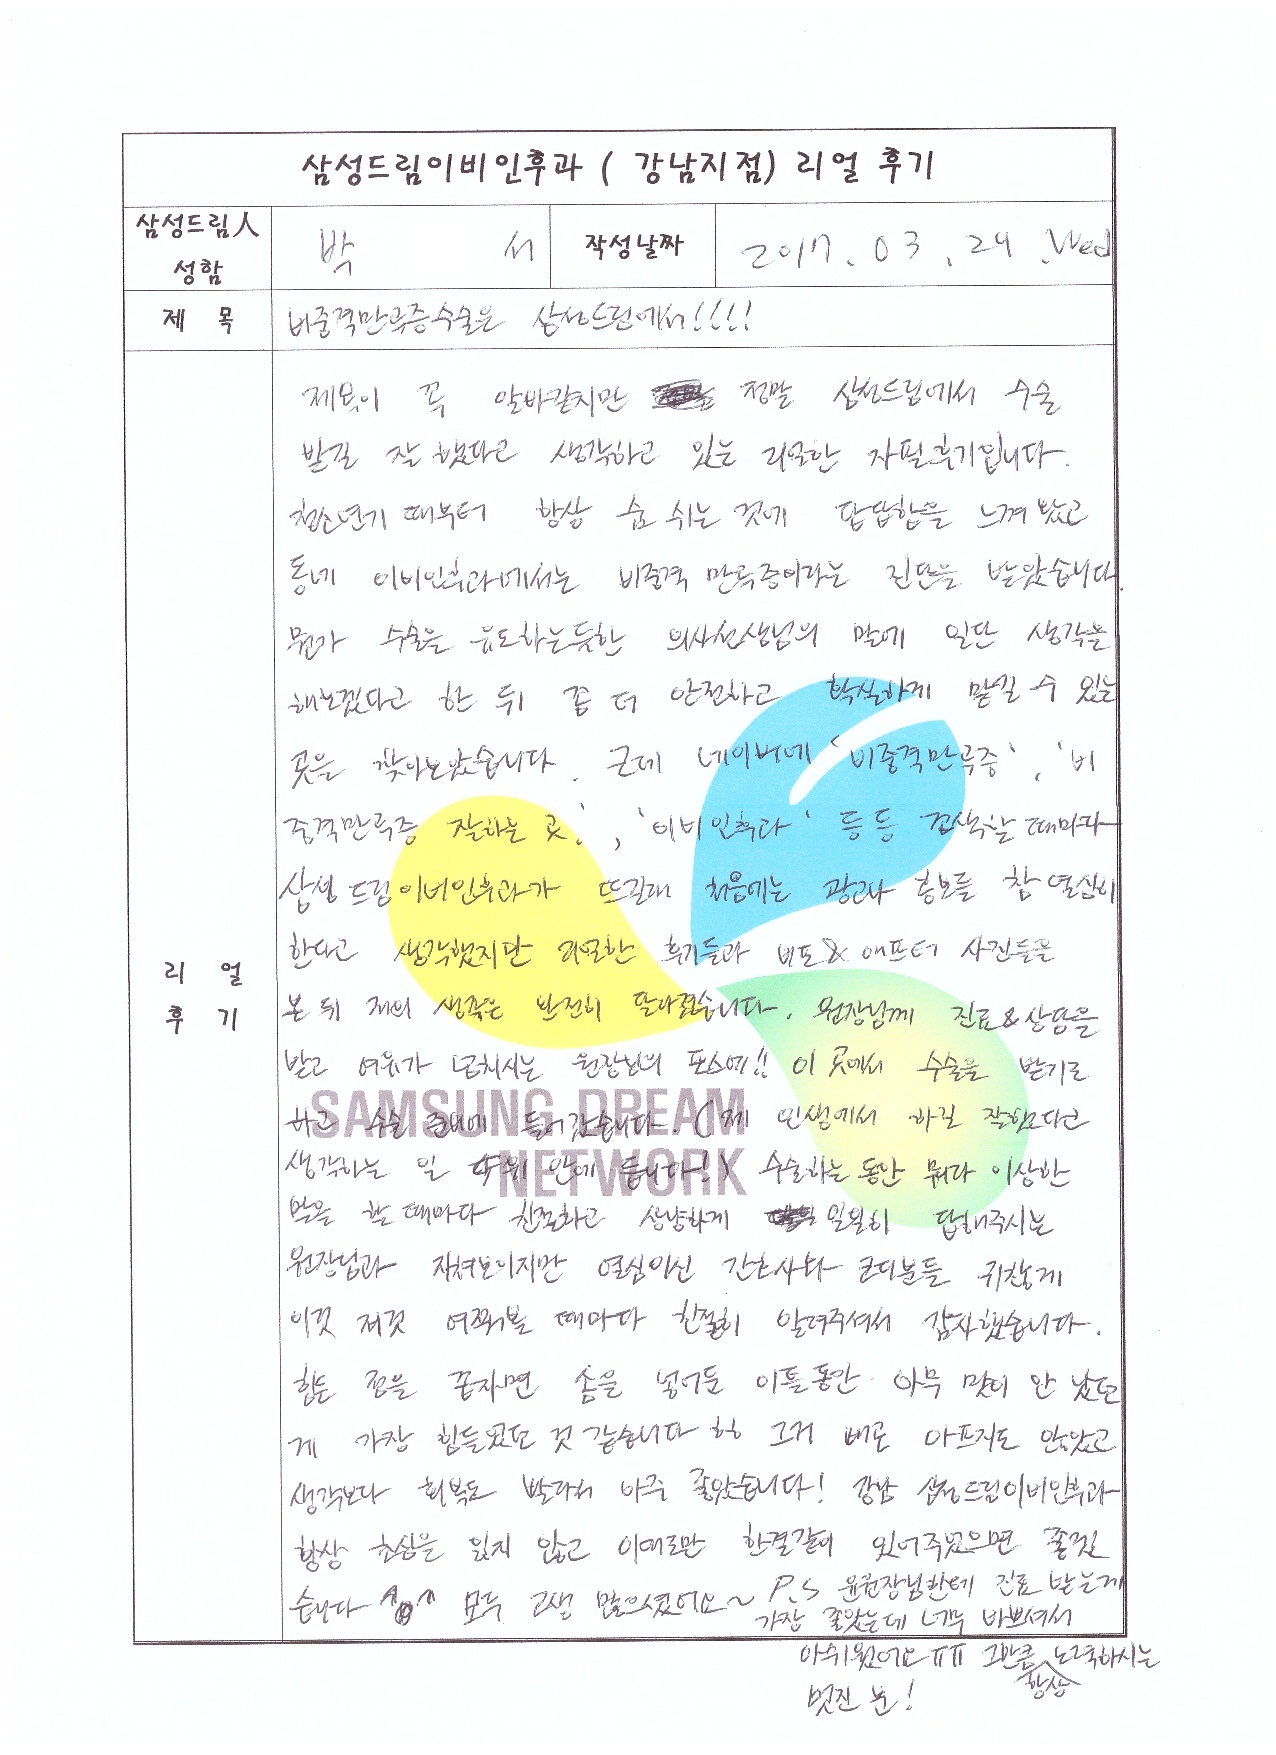 삼성드림이비인후과 ( 강남지점) 리얼 후기
삼성드림人 성함
박 서
작성날짜
2017. 03. 29 .Wed
제 목
비중격만곡증수술은 삼성드림에서!!!!
리 얼
후 기
제목이 꼭 알바같지만 정말 삼성드림에서 수술
받길 잘 했다고 생각하고 있는 리얼한 자필후기입니다.
청소년기 때부터 항상 숨 쉬는 것에 답답함을 느껴 왔고
동네 이비인후과에서는 비중격 만곡증이라는 진단을 받았습니다.
뭔가 수술을 유도하는듯한 의사선생님의 말에 일단 생각을
해보겠다고 한 뒤 좀 더 안전하고 확실하게 맡길 수 있는
곳을 찾아보았습니다. 근데 네이버에 '비중격만곡증', '비
중격만곡증 잘하는 곳', '이비인후과' 등등 검색할 때마다
삼성드림이비인후과가 뜨길래 처음에는 광고나 홍보를 참 열심히
한다고 생각했지만 리얼한 후기들과 비포&애프터 사진들을
본 뒤 저의 생각은 완전히 달라졌습니다. 원장님께 진료&상담을
받고 여유가 넘치시는 원장님의 포스에!! 이 곳에서 수술을 받기로
하고 수술 준비에 들어갔습니다. (제 인생에서 하길 잘했다고
생각하는 일 안에 듭니다!) 수술하는 동안 뭐라 이상한
말을 할 때마다 친절하고 상냥하게 일일히 답해주시는
원장님과 지쳐보이지만 열심이신 간호사와 코디분들 귀찮게
이것 저것 여쭤볼 때마다 친절히 알려주셔서 감사했습니다.
힘든 점을 꼽자면 솜을 넣어둔 이틀동안 아무 맛이 안 났던
게 가장 힘들었던 것 같습니다 ㅎㅎ 그거 빼곤 아프지도 않았고
생각보다 회복도 빨라서 아주 좋았습니다! 강남 삼성드림이비인후과
항상 초심을 잃지 않고 이대로만 한결같이 있어주셨으면 좋겠
습니다 ^^ 모두 고생 많으셨어요~ P.S 윤원장님한테 진료 받는게
가장 좋았는데 너무 바쁘셔서
아쉬웠어요ㅠㅠ 그만큼 항상 노력하시는
멋진 분!
SAMSUNG DREAM
NETWORK